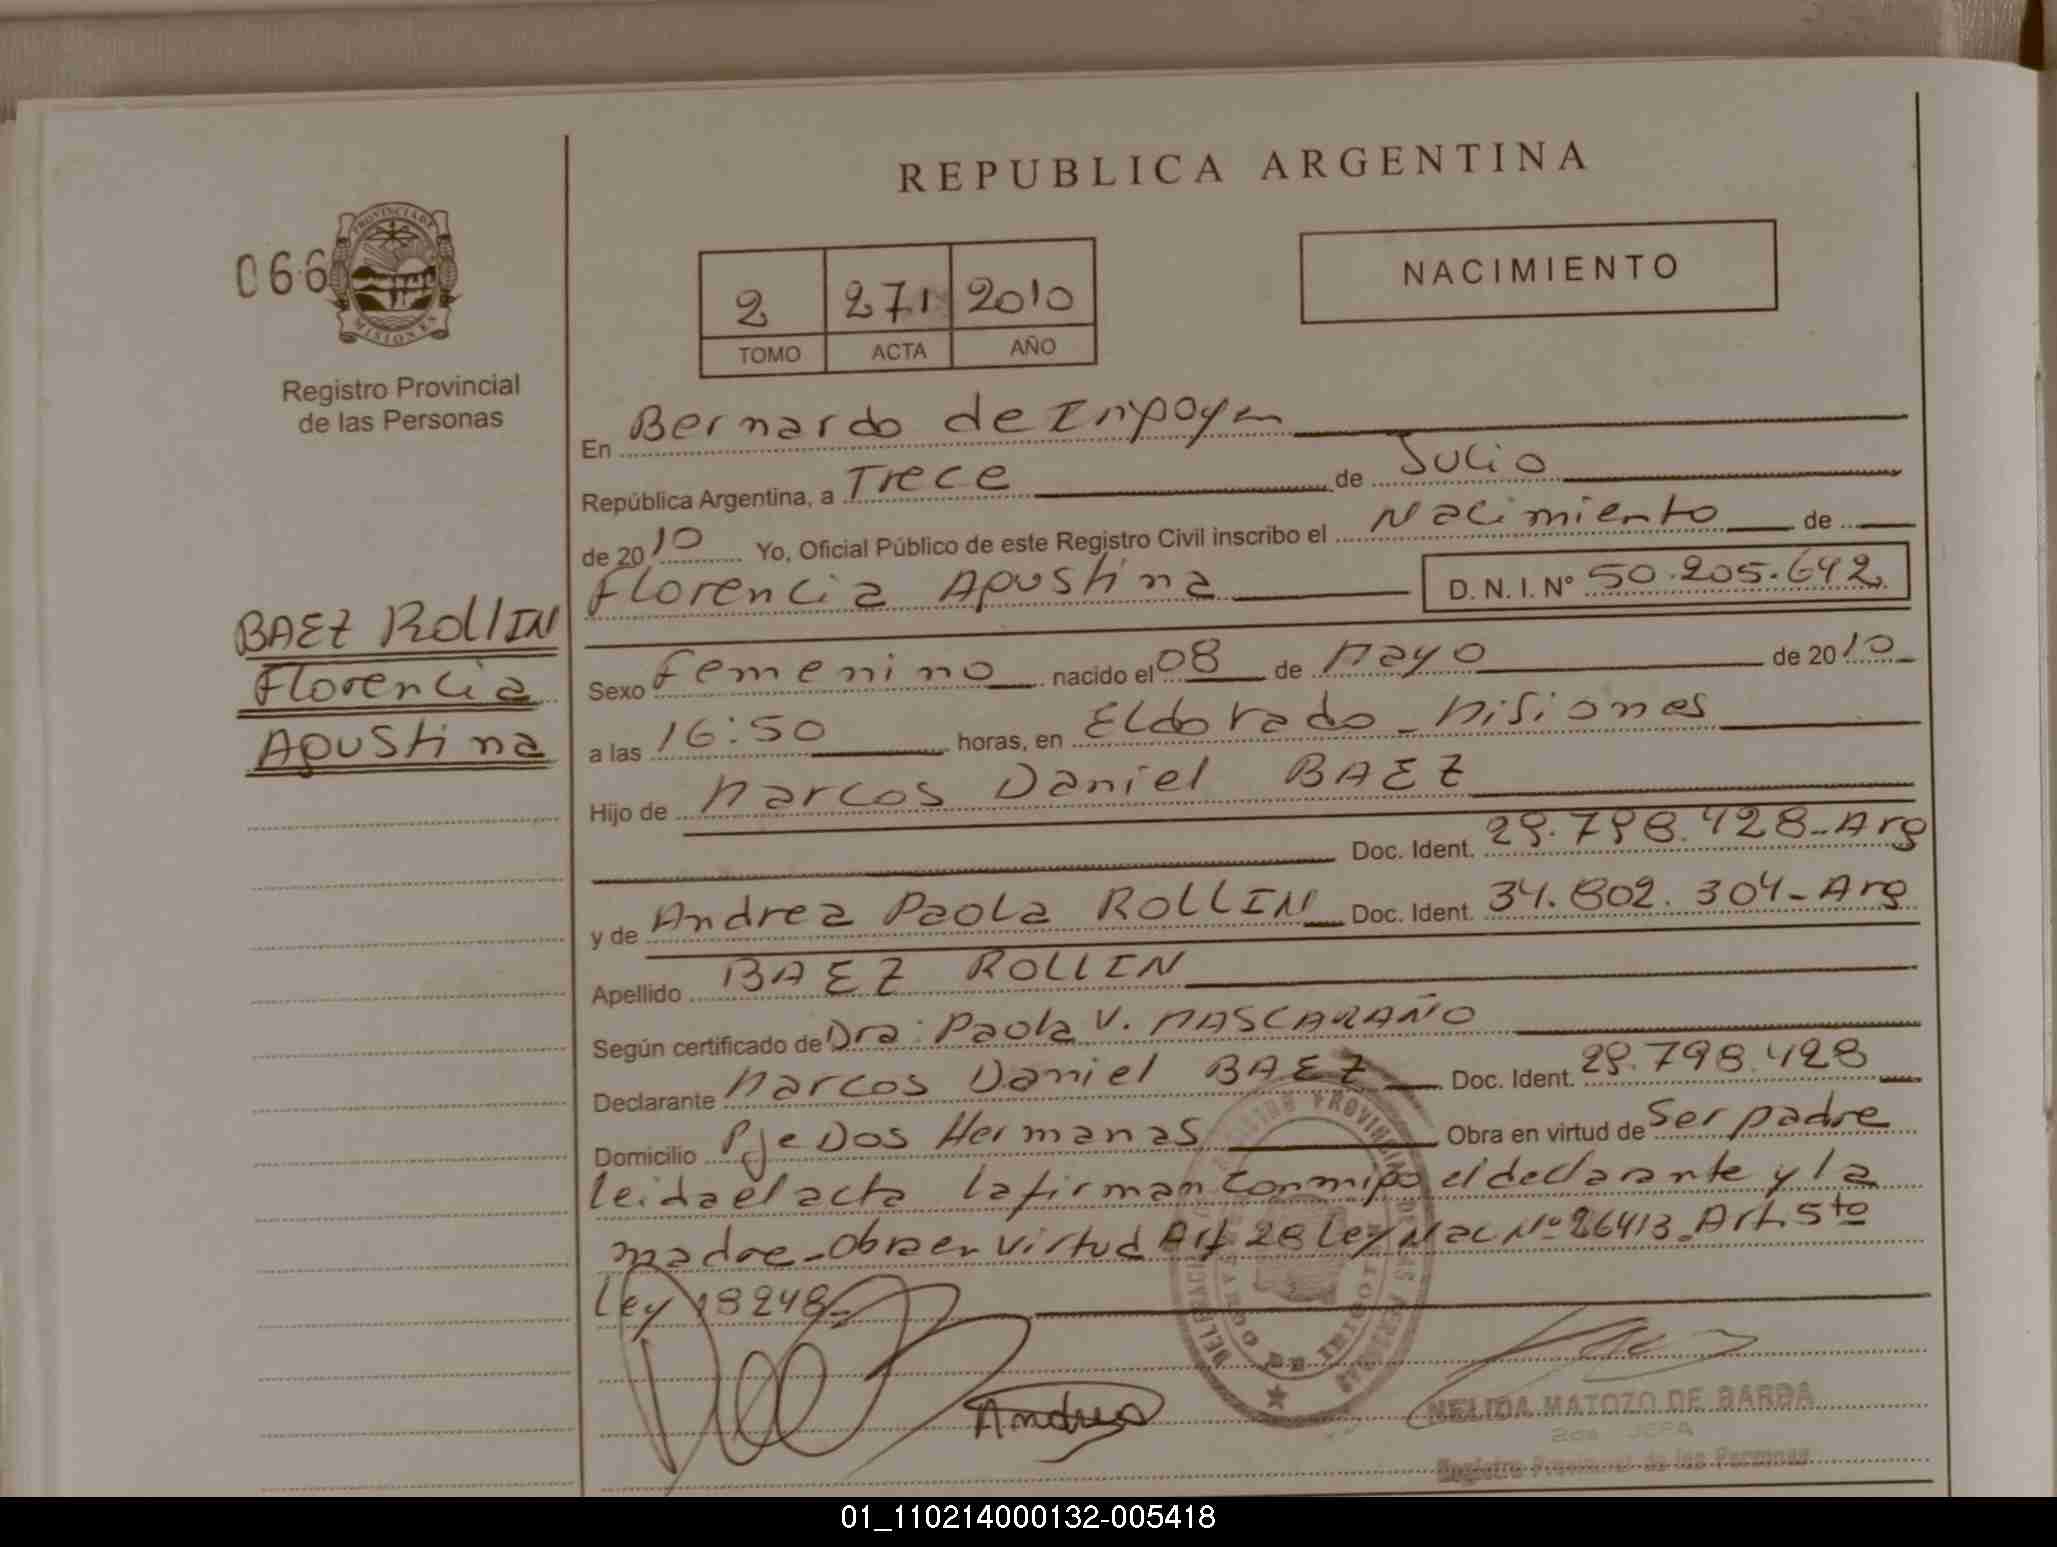 REPUBLICA ARGENTINA
066
PROVINCIA DE
MISIONES
Registro Provincial
de las Personas
2 271 2010
TOMO ACTA AÑO
NACIMIENTO
En Bernardo de Irigoyen
República Argentina, a Trece de Julio
de 2010 Yo, Oficial Público de este Registro Civil inscribo el Nacimiento de
Florencia Agustina D. N. I. N° 50.205.642
BAEZ ROLLIN
Florencia
Agustina
Sexo Femenino nacido el 08 de Mayo de 2010
a las 16:50 horas, en Eldorado - Misiones
Hijo de Marcos Daniel BAEZ
Doc. Ident. 29.798.428-Arg
y de Andrea Paola ROLLIN Doc. Ident. 34.802.304-Arg
Apellido BAEZ ROLLIN
Según certificado de Dra: Paola V. MASCARAÑO
Declarante Marcos Daniel BAEZ Doc. Ident. 29.798.428
Domicilio Pje Dos Hermanas Obra en virtud de Ser padre
leida el acta la firman conmigo el declarante y la
madre - Obra en virtud Art 28 Ley Nac Nº 26413. Art. 5to
Ley 18248-
Andrea
NELIDA MATOZO DE BARBA
2da JEFA
Registro Provincial de las Personas
01_110214000132-005418